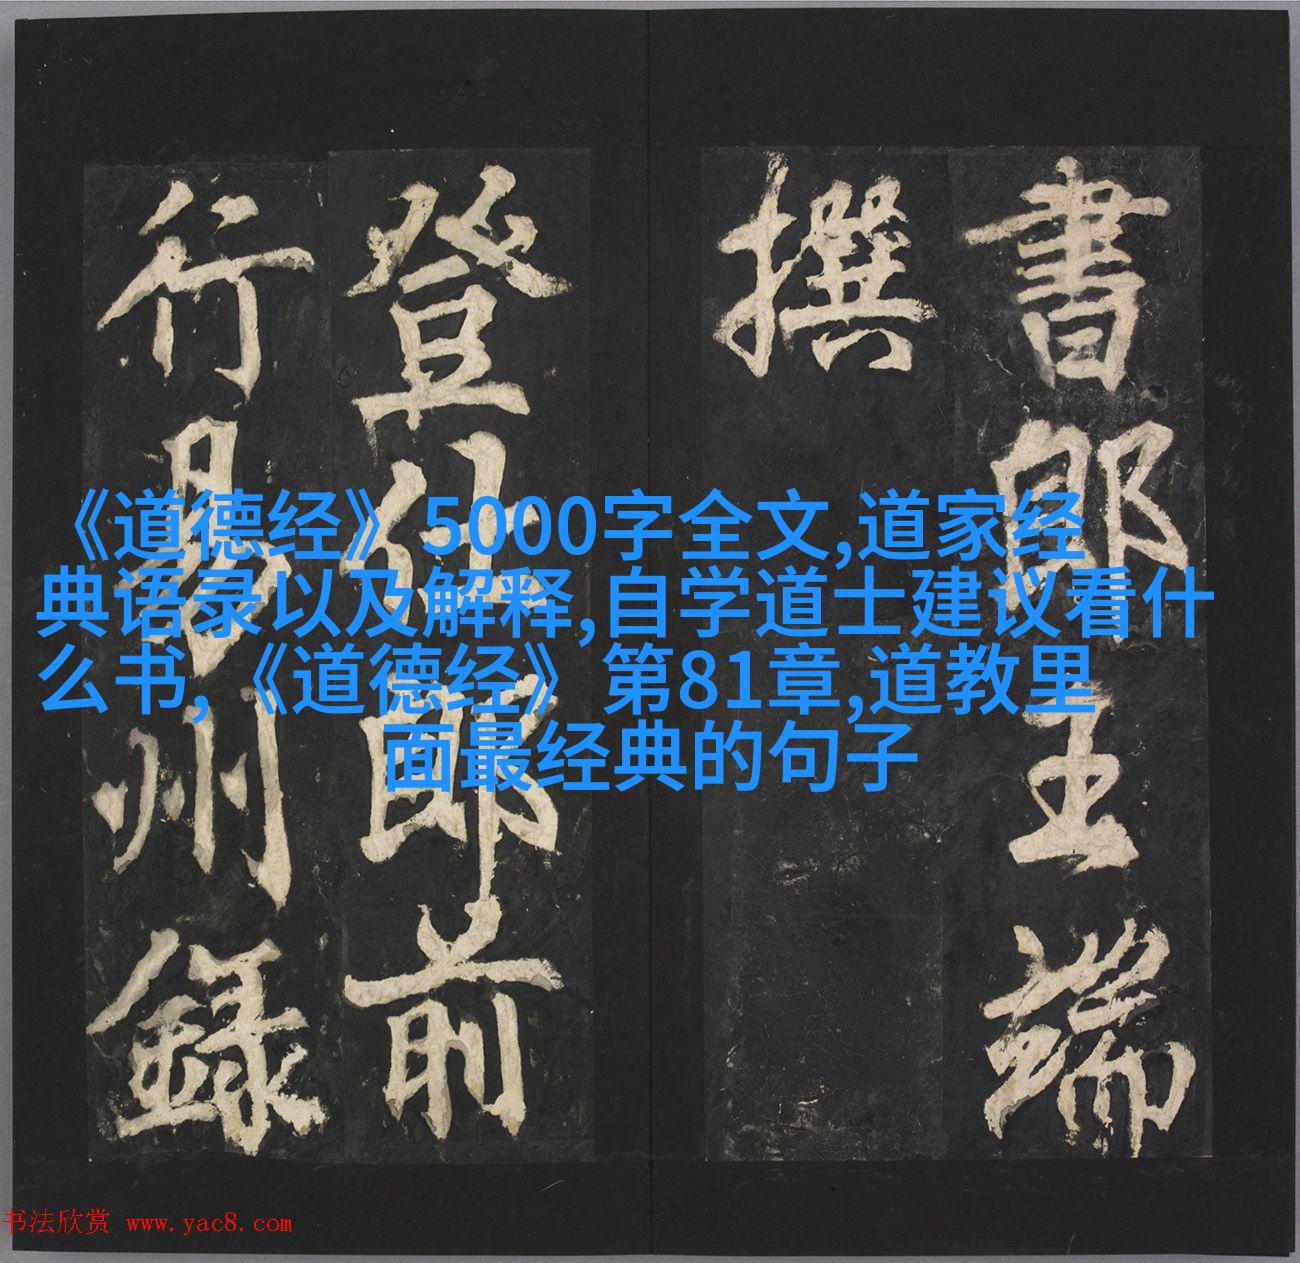 書郎王端
撰
登仕郎前
行易州錄
《道德经》5000字全文,道家经
典语录以及解释,自学道士建议看什
么书,《道德经》第81章,道教里
面最经典的句子
书法欣赏 www.yac8.com